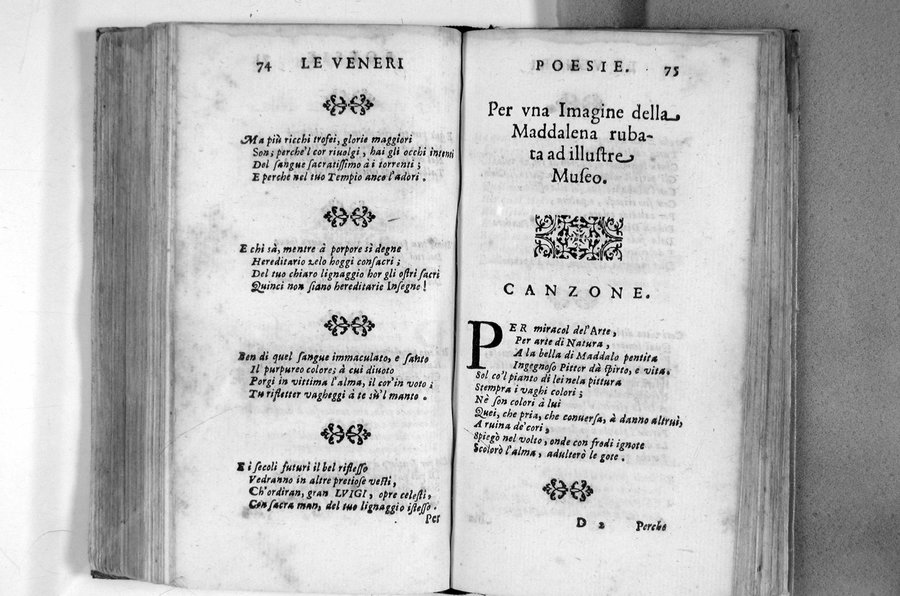 74 LE VENERI
Ma più ricchi trofei, glorie maggiori
Son; perche'l cor riuolgi, hai gli occhi intenti
Del sangue sacratissimo à i torrenti;
E perche nel tuo Tempio anco l'adori.
E chi sà, mentre à porpore sì degne
Hereditario zelo hoggi consacri;
Del tuo chiaro lignaggio hor gli ostri sacri
Quinci non siano hereditarie Insegne!
Ben di quel sangue immaculato, e santo
Il purpureo colore; à cui diuoto
Porgi in vittima l'alma, il cor'in voto;
Tu rifletter vagheggi à te sù'l manto.
E i secoli futuri il bel riflesso
Vedranno in altre pretiose vesti,
Ch'ordiran, gran LVIGI, opre celesti,
Con sacra man, del tuo lignaggio istesso.
Per
POESIE. 75
Per vna Imagine della
Maddalena ruba-
ta ad illustre
Museo.
CANZONE.
PER miracol del'Arte,
Per arte di Natura,
A la bella di Maddalo pentita
Ingegnoso Pitter dà spirto, e vita,
Sol co'l pianto di lei nela pittura
Stempra i vaghi colori;
Nè son colori à lui
Quei, che pria, che conuersa, à danno altrui,
A ruina de'cori,
Spiegò nel volto, onde con frodi ignote
Scolorò l'alma, adulterò le gote.
D 2 Perche